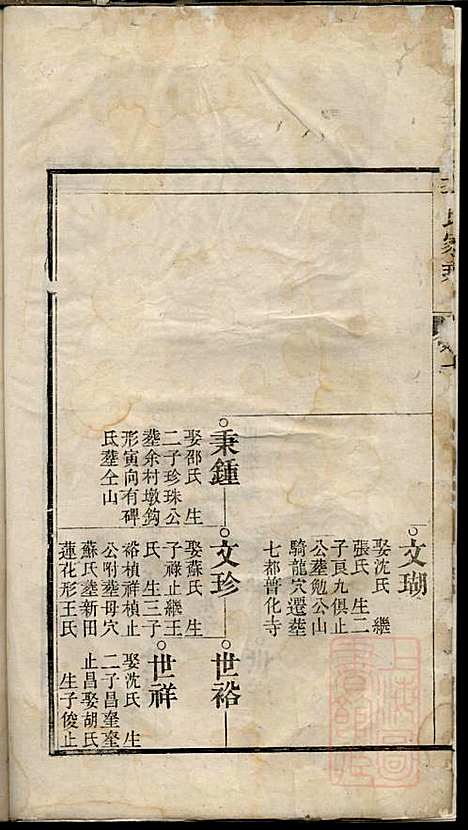 文瑚
娶沈氏 繼
張氏 生二
子亰九俱止
公塟勉公山
騎龍穴遷塟
七都普化寺
秉鍾
娶邵氏 生
二子珍珠公
塟余村墩鈎
形寅向有碑
氏塟仝山
文珍
娶蘇氏 生
子祿止繼王
氏 生三子
裕楨祥楨止
公附塟母穴
蘇氏塟新田
蓮花形王氏
世裕
世祥
娶沈氏 生
二子昌奎奎
止昌娶胡氏
生子俊止